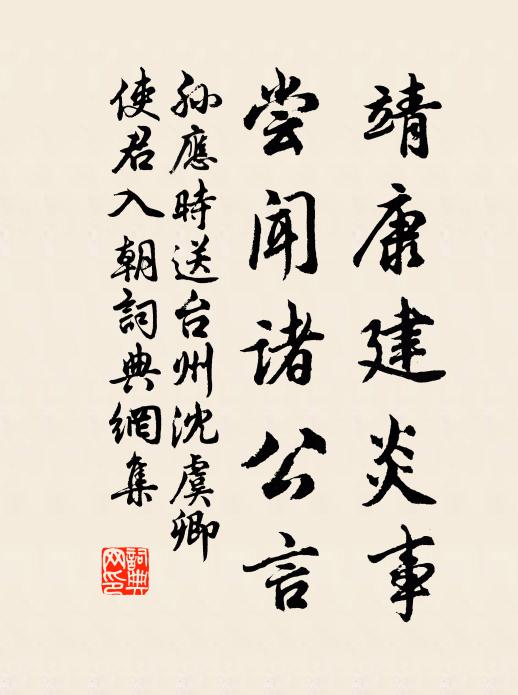 靖康建炎事
尝闻诸公言
孙應時送台州沈虞卿
使君入朝詞典網集
詞典
网印